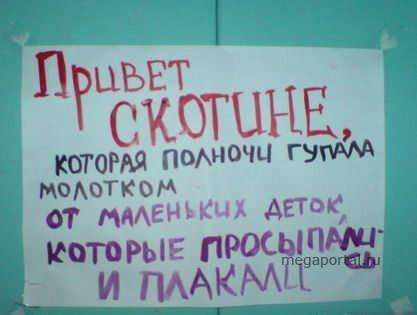 Привет
СКОТИНЕ,
КОТОРАЯ ПОЛНОЧИ ГУПАЛА
МОЛОТКОМ
ОТ МАЛЕНЬКИХ ДЕТОК,
КОТОРЫЕ ПРОСЫПАЛИСЬ
megaportal.ru
И ПЛАКАЛИ